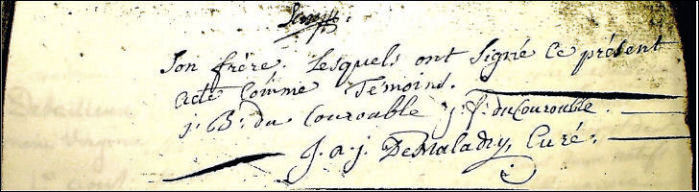 Son frère. Lesquels ont Signé Ce présent
acte Comme Témoins.
j: B: du Courouble j: f: du Courouble.
J. a. j. DeMaladry, Curé.